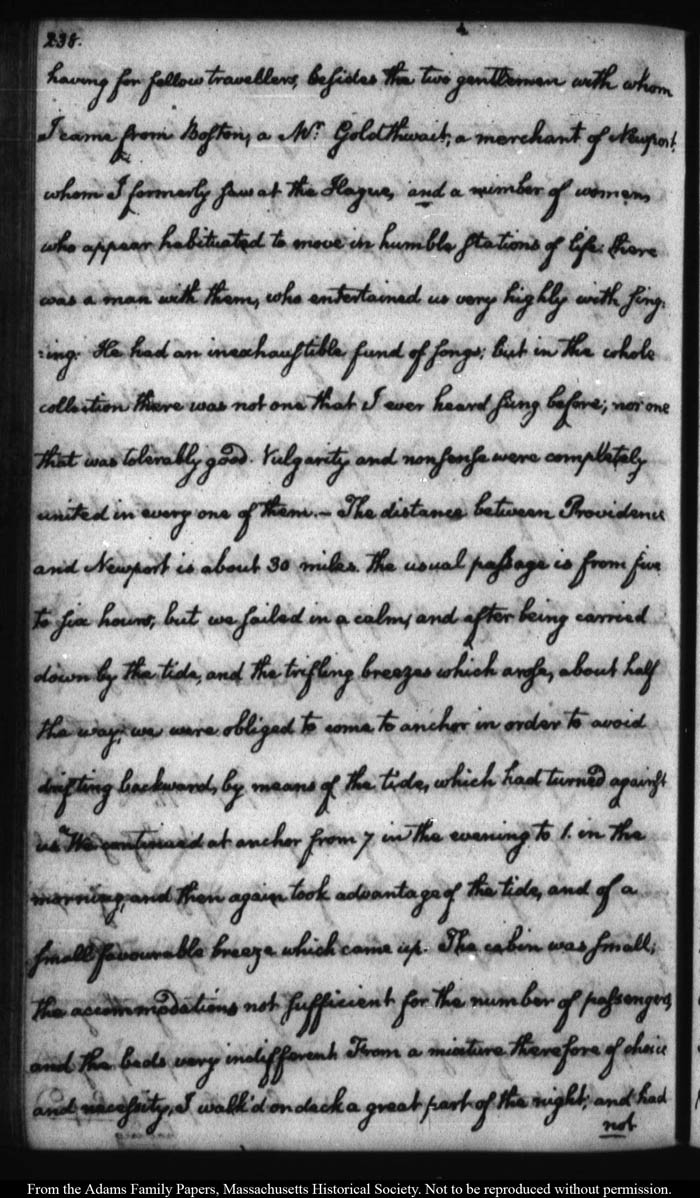 238.
having for fellow travellers, besides the two gentlemen with whom
I came from Boston, a Mr. Goldthwait, a merchant of Newport,
whom I formerly saw at the Hague, and a number of women,
who appear habituated to move in humble stations of life: there
was a man with them, who entertained us very highly with sing:
:ing. He had an inexhaustible fund of songs; but in the whole
collection there was not one that I ever heard sung before; nor one
that was tolerably good. Vulgarity and nonsense were completely
united in every one of them.— The distance between Providence
and Newport is about 30 miles. the usual passage is from five
to six hours, but we sailed in a calm, and after being carried
down by the tide, and the trifling breezes which arose, about half
the way, we were obliged to come to anchor in order to avoid
drifting backward, by means of the tide, which had turned against
us. We continued at anchor from 7 in the evening to 1. in the
morning, and then again took advantage of the tide, and of a
small favourable breeze which came up. The cabin was small;
the accommodations not sufficient for the number of passengers,
and the beds very indifferent. From a mixture therefore of choice
and necessity, I walk'd on deck a great part of the night; and had
not
From the Adams Family Papers, Massachusetts Historical Society. Not to be reproduced without permission.